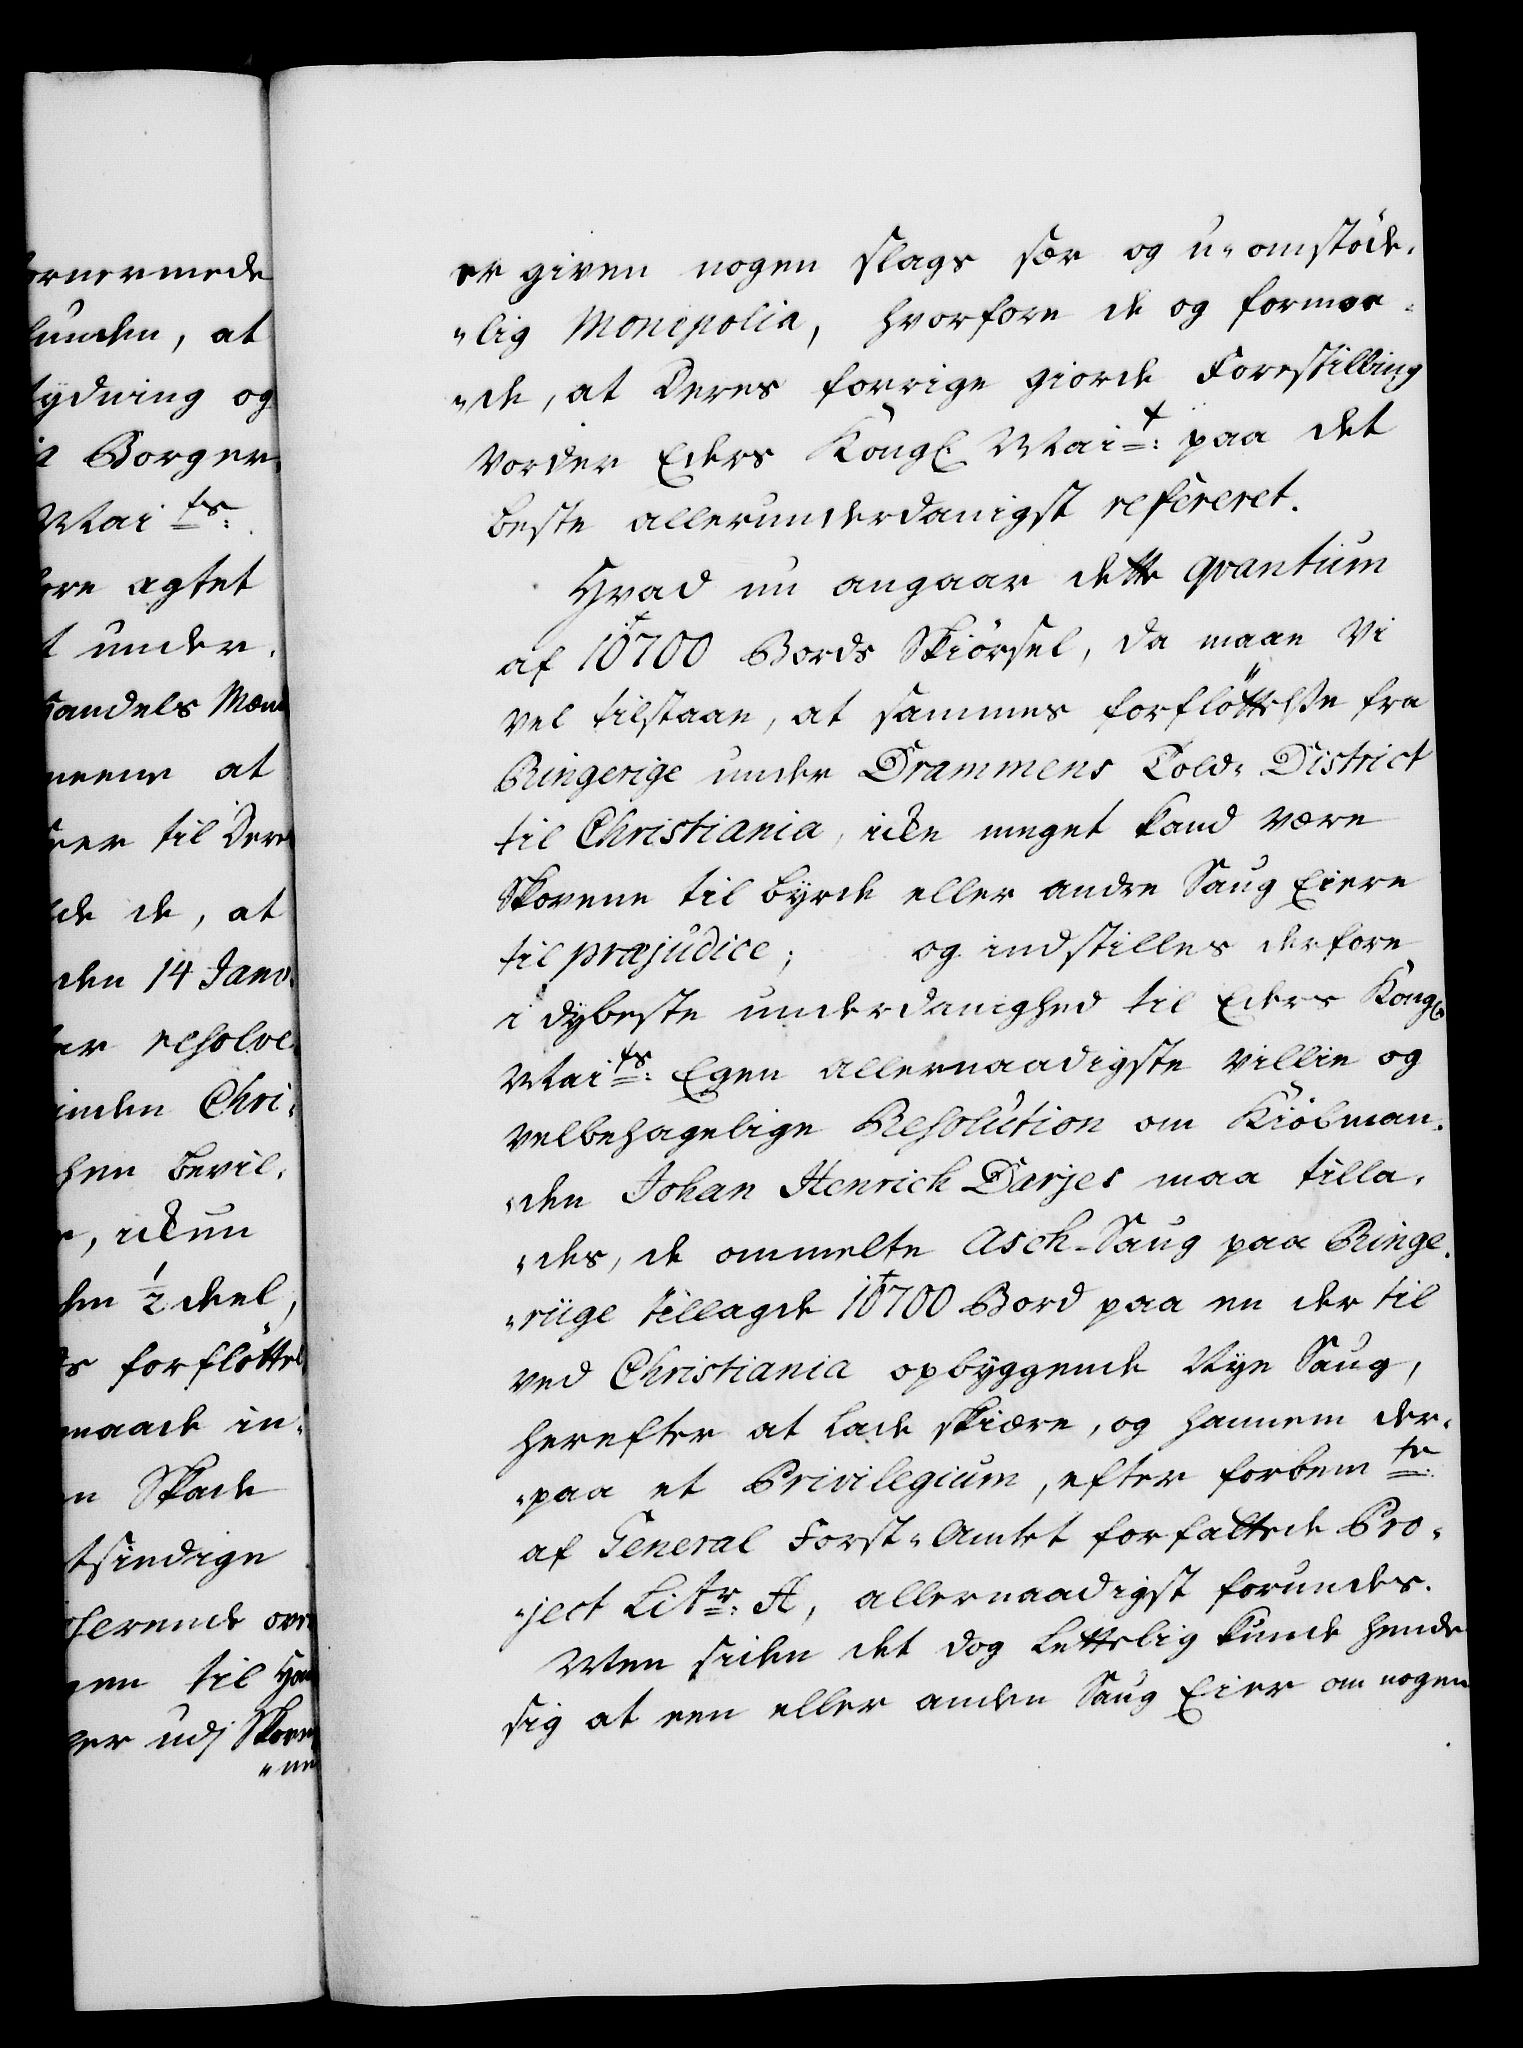 ornermede
lunden, at
tydning og
a Borger
Mai ts:
ore agtet
t under-
Handels Mænd
meene at
eer til Dere
lde de, at
den 14 Janv.
er resolve
inden Chri-
hen bevil-
e, ickun
den ½ deel,
ts forfløttel
maade in-
n Skade
tsindige
fererende over
gen til Han
ger udj Skove
"ne
er given nogen slags sær og u-omstöde-
"lig Monopolia, hvorfore de og formee-
"de, at Deres forrige giorde Forestilling
vorder Eders Kongl. Mait: paa det
beste allerunderdanigst refereret.
Hvad nu angaar dette qvantum
af 10700 Bords Skiörsel, da maae vi
vel tilstaae, at sammes forflöttelse fra
Ringerige under Drammens Told-District
til Christiania, icke meget kand være
Skovene til byrde eller andre Saug Eiere
til præjudice; og indstilles derfore
i dybeste underdanighed til Eders Kongl
Maits: Egen allernaadigste villie og
velbehagelige Resolution om Kiöbman-
"den Johan Henrich Darjes maa tilla-
"des, de ommelte Asch-Saug paa Ringe-
"riige tillagde 10700 Bord paa en der til
ved Christiania opbyggende Nye Saug,
herefter at lade skiære, og hannem der-
"paa et Privilegium, efter forbemte:
af General Forst-Amtet forfattede Pro-
"ject Litr: A, allernaadigst forundes.
Men siden det dog lettelig kunde hende
sig at een eller anden Saug Eier om nogen